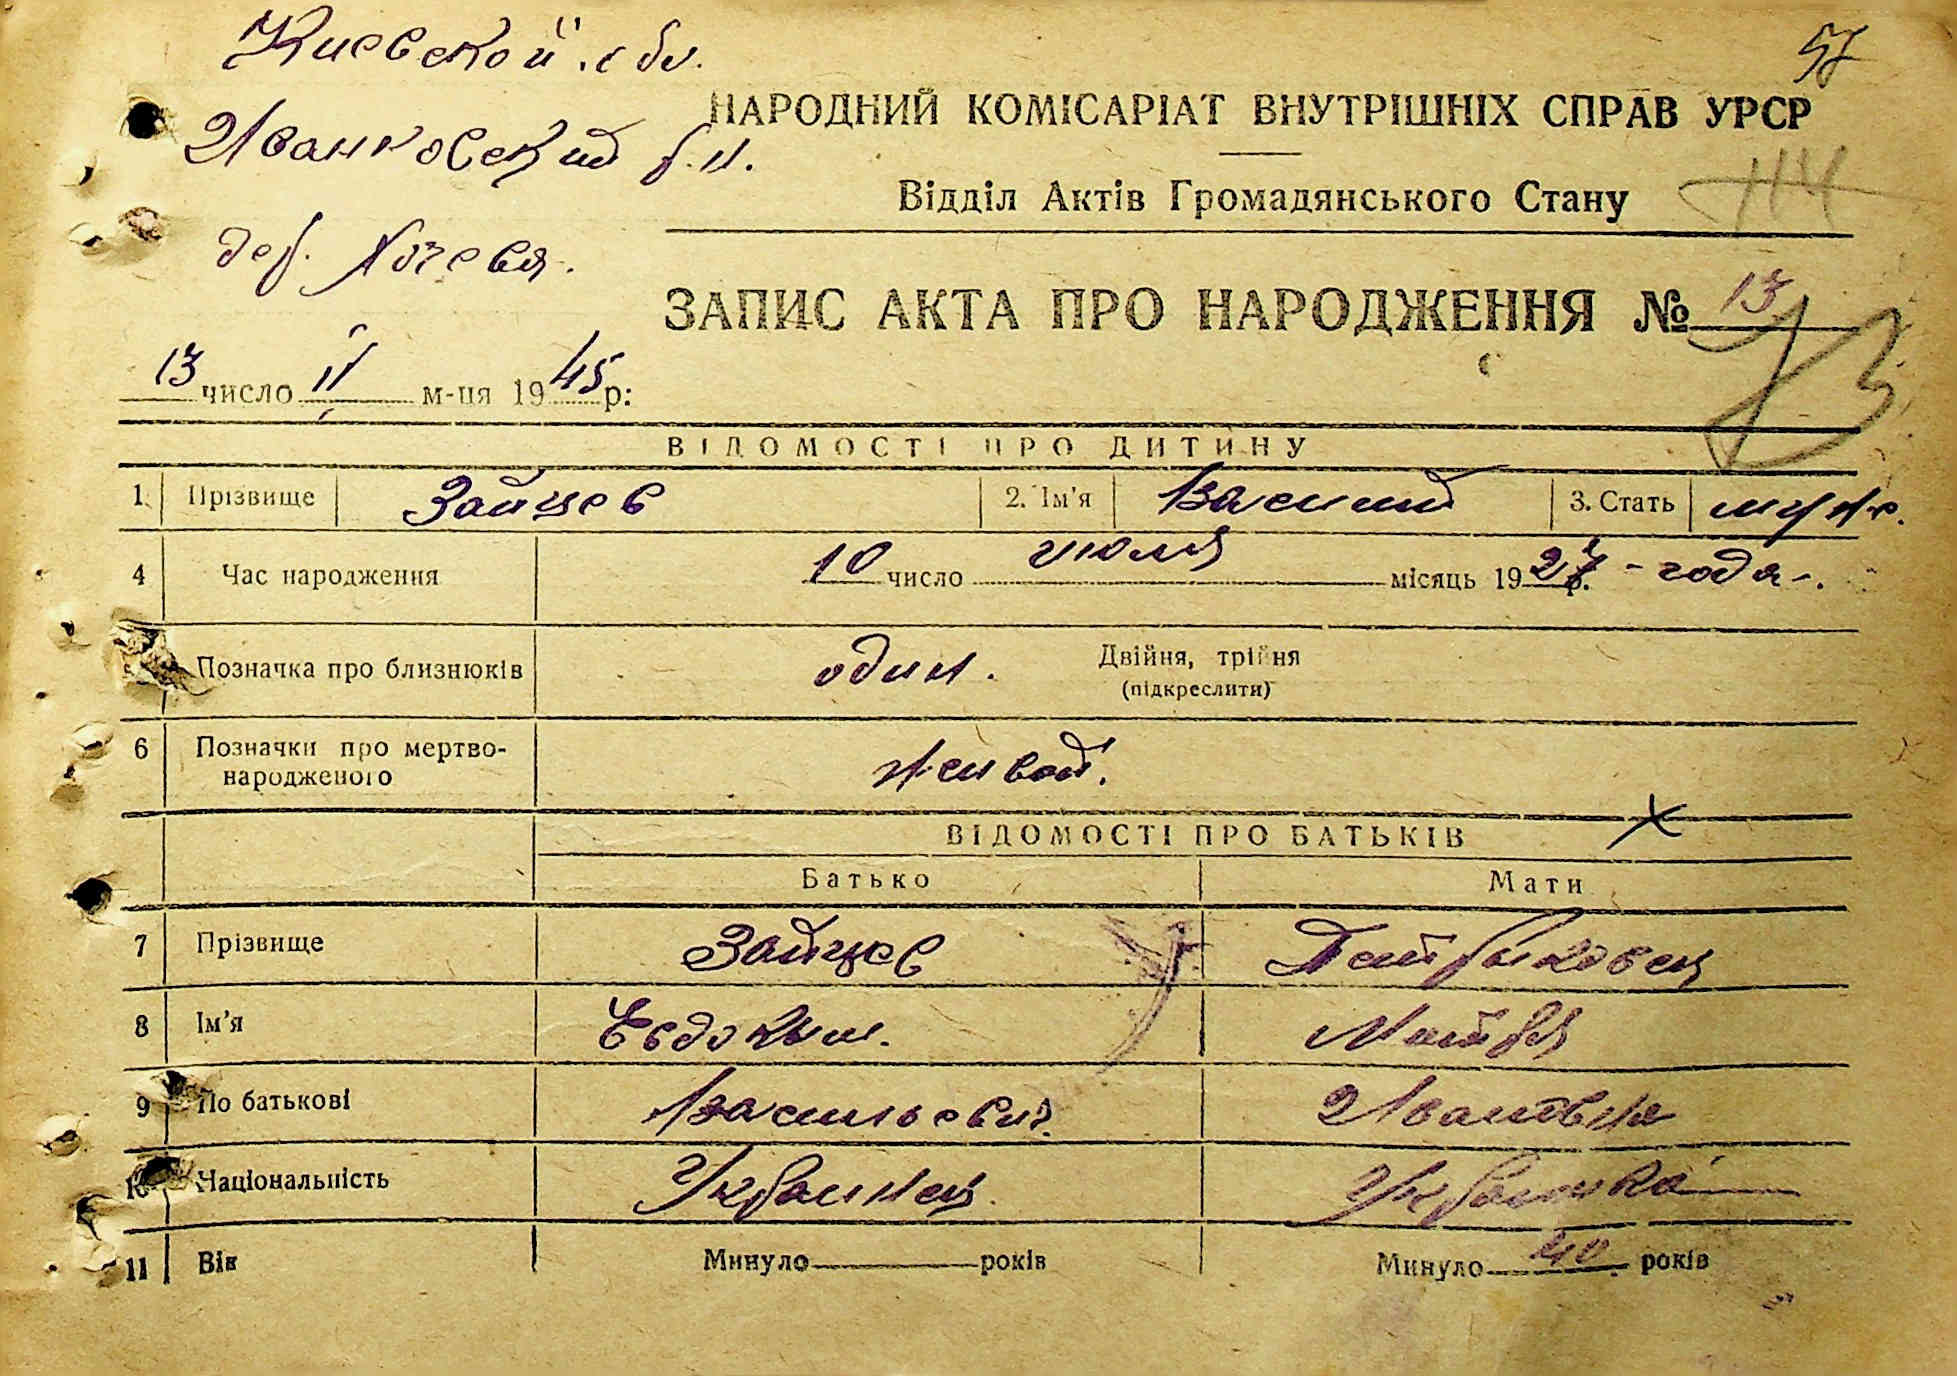 57
Киевской обл.
НАРОДНИЙ КОМІСАРІАТ ВНУТРІШНІХ СПРАВ УРСР
Иванковский р.н.
Відділ Актів Громадянського Стану
114
дер.
ЗАПИС АКТА ПРО НАРОДЖЕННЯ № 13
13
13 число II м-ця 1945 р:
ВІДОМОСТІ ПРО ДИТИНУ
1. Прізвище Зайцев 2. Ім'я Василий 3. Стать муж.
4 Час народження 10 число июля місяць 1927 р. - года -.
Позначка про близнюків один. Двійня, трійня
(підкреслити)
6 Позначки про мертво-
народженого живой.
ВІДОМОСТІ ПРО БАТЬКІВ
Батько Мати
7 Прізвище Зайцев
8 Ім'я Евдоким.
9 По батькові Васильевич. Ивановна
10 Національність Украинец. Украинка
11 Вік Минуло років Минуло 40 років